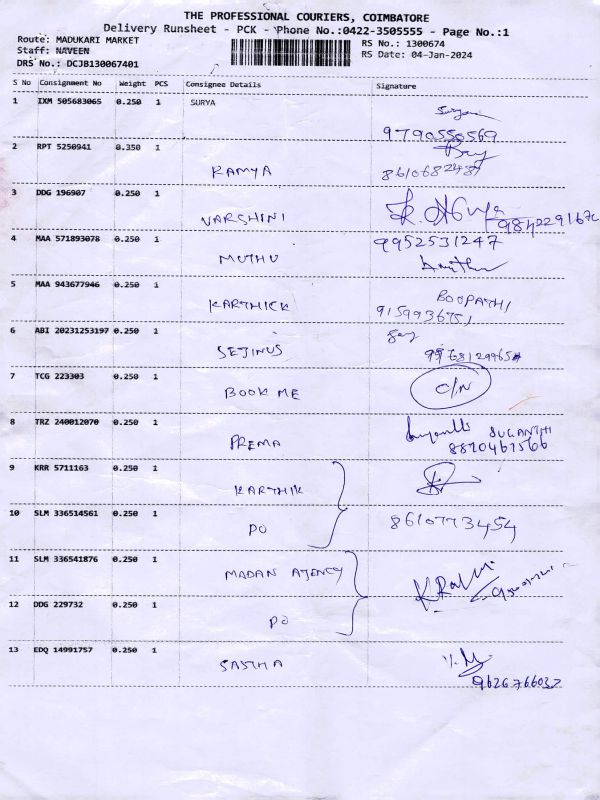 THE PROFESSIONAL COURIERS, COIMBATORE
Delivery Runsheet - PCK - Phone No.:0422-3505555 - Page No.:1
Route: MADUKARI MARKET
RS No.: 1300674
Staff: NAVEEN
RS Date: 04-Jan-2024
DRS No.: DCJB130067401
S No Consignment No Weight PCS Consignee Details Signature
1 IXM 505683065 0.250 1 SURYA
9790550569
2 RPT 5250941 0.350 1
KAMYA
3 DDG 196907 0.250 1
VARSHINI
4 MAA 571893078 0.250 1 9952531247
MUTHU
5 MAA 943677946 0.250 1
KARTHICK BOOPATHI
9159936751
6 ABI 20231253197 0.250 1
SEJINUS
7 TCG 223303 0.250 1
BOOK ME C/N
8 TRZ 240012070 0.250 1
PREMA SUGANTHI
9 KRR 5711163 0.250 1
KARTHIK
10 SLM 336514561 0.250 1
PO 8610773454
11 SLM 336541876 0.250 1
MADAN AJENCY
12 DDG 229732 0.250 1
PO
13 EDQ 14991757 0.250 1
SASTHA
9626766037